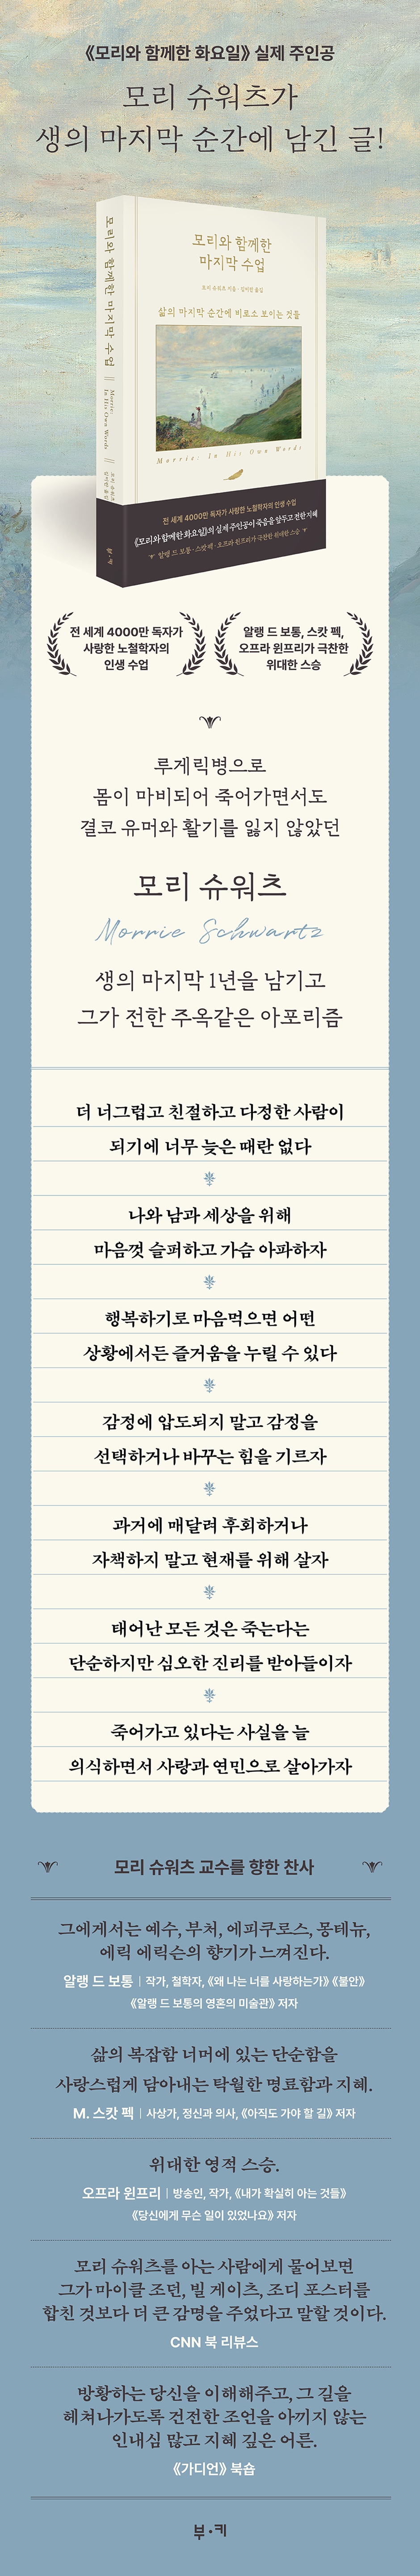 《모리와 함께한 화요일》 실제 주인공
모리 슈워츠가
생의 마지막 순간에 남긴 글!
모리와 함께한 마지막 수업
Morrie:
In His Own Words
모리 슈워츠
김미란 옮김
부·키
모리와 함께한
마지막 수업
모리 슈워츠 지음 · 김미란 옮김
삶의 마지막 순간에 비로소 보이는 것들
Morrie: In His Own Words
전 세계 4000만 독자가 사랑한 노철학자의 인생 수업
《모리와 함께한 화요일》의 실제 주인공이 죽음을 앞두고 전한 지혜
알랭 드 보통·스캇 펙·오프라 윈프리가 극찬한 위대한 스승
전 세계 4000만 독자가
사랑한 노철학자의
인생 수업
알랭 드 보통, 스캇 펙,
오프라 윈프리가 극찬한
위대한 스승
루게릭병으로
몸이 마비되어 죽어가면서도
결코 유머와 활기를 잃지 않았던
모리 슈워츠
Morrie Schwartz
생의 마지막 1년을 남기고
그가 전한 주옥같은 아포리즘
더 너그럽고 친절하고 다정한 사람이
되기에 너무 늦은 때란 없다
나와 남과 세상을 위해
마음껏 슬퍼하고 가슴 아파하자
행복하기로 마음먹으면 어떤
상황에서든 즐거움을 누릴 수 있다
감정에 압도되지 말고 감정을
선택하거나 바꾸는 힘을 기르자
과거에 매달려 후회하거나
자책하지 말고 현재를 위해 살자
태어난 모든 것은 죽는다는
단순하지만 심오한 진리를 받아들이자
죽어가고 있다는 사실을 늘
의식하면서 사랑과 연민으로 살아가자
모리 슈워츠 교수를 향한 찬사
그에게서는 예수, 부처, 에피쿠로스, 몽테뉴,
에릭 에릭슨의 향기가 느껴진다.
알랭 드 보통 | 작가, 철학자, 《왜 나는 너를 사랑하는가》 《불안》
《알랭 드 보통의 영혼의 미술관》 저자
삶의 복잡함 너머에 있는 단순함을
사랑스럽게 담아내는 탁월한 명료함과 지혜.
M. 스캇 펙 | 사상가, 정신과 의사, 《아직도 가야 할 길》 저자
위대한 영적 스승.
오프라 윈프리 | 방송인, 작가, 《내가 확실히 아는 것들》
《당신에게 무슨 일이 있었나요》 저자
모리 슈워츠를 아는 사람에게 물어보면
그가 마이클 조던, 빌 게이츠, 조디 포스터를
합친 것보다 더 큰 감명을 주었다고 말할 것이다.
CNN 북 리뷰스
방황하는 당신을 이해해주고, 그 길을
헤쳐나가도록 건전한 조언을 아끼지 않는
인내심 많고 지혜 깊은 어른.
《가디언》 북숍
부·키